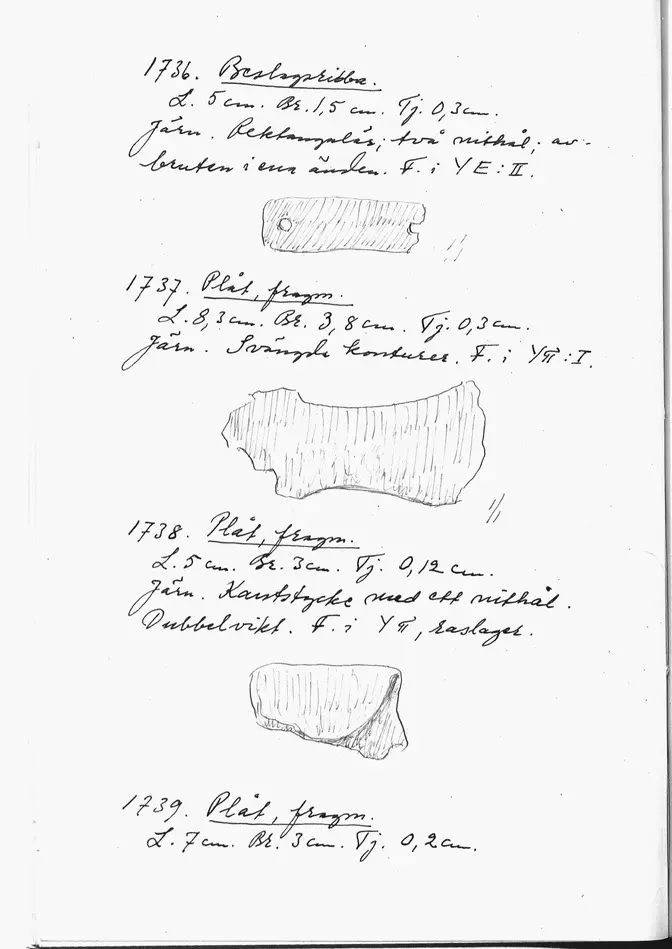 1736. Beslagsribba.
L. 5 cm. Br. 1,5 cm. Tj. 0,3 cm.
Järn. Rektangulär; två nithål; av-
bruten i ena änden. F. i YE:II.
1/1
1737. Plåt, fragm.
L. 8,3 cm. Br. 3,8 cm. Tj. 0,3 cm.
Järn. Svängda konturer. F. i Yπ:I.
1/1
1738. Plåt, fragm.
L. 5 cm. Br. 3 cm. Tj. 0,12 cm.
Järn. Kantstycke med ett nithål.
Dubbelvikt. F. i Yπ, raslager.
1739. Plåt, fragm.
L. 7 cm. Br. 3 cm. Tj. 0,2 cm.